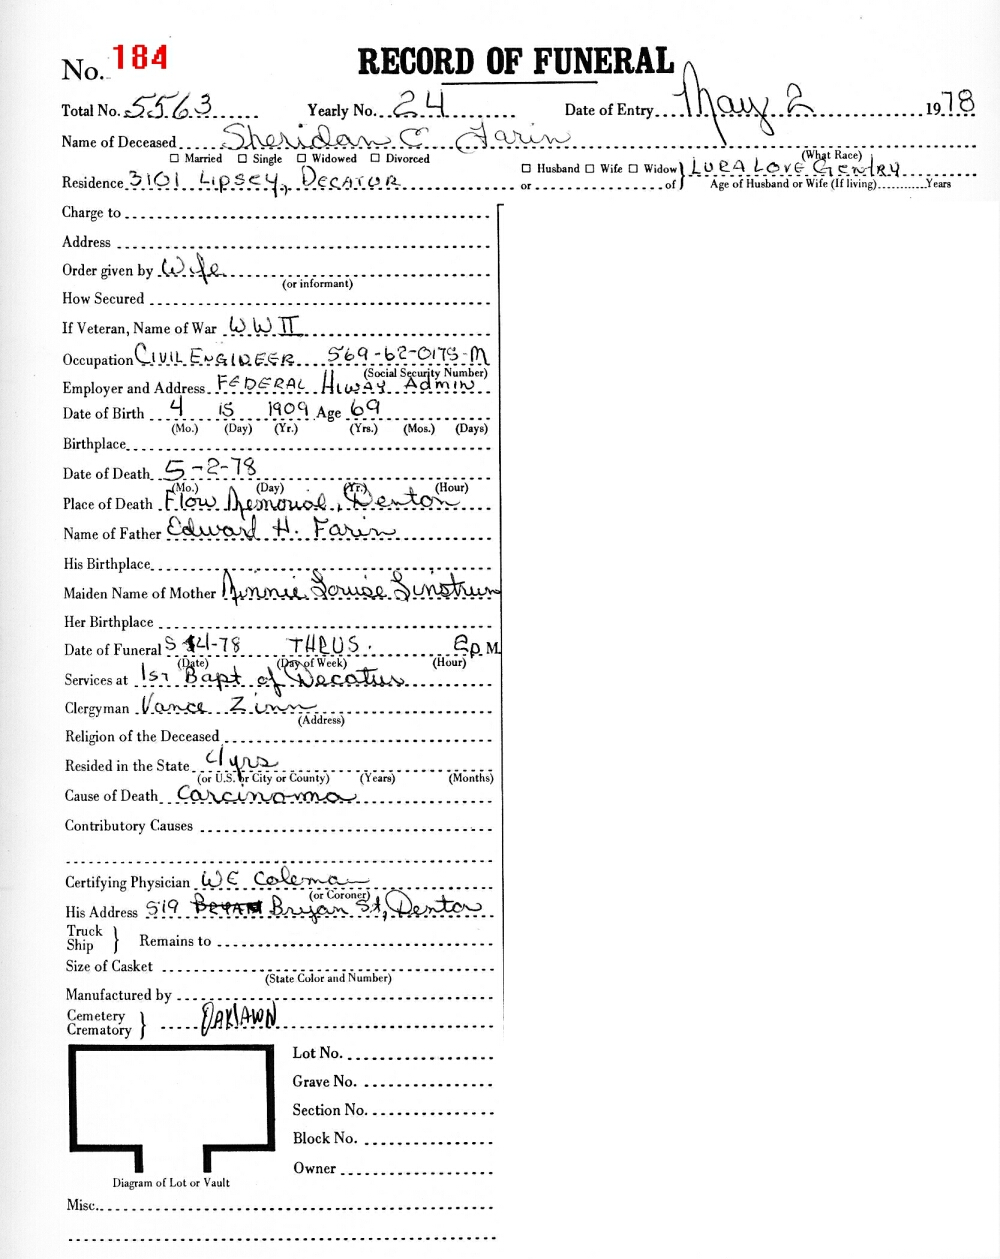 No. 184 RECORD OF FUNERAL
Total No. 5563 Yearly No. 24 Date of Entry May 2 1978
Name of Deceased Sheridan C Farin
(What Race)
☐ Married ☐ Single ☐ Widowed ☐ Divorced
Residence 3101 Lipsey, Decatur ☐ Husband ☐ Wife ☐ Widow } LURA LOVE GENTRY
or of Age of Husband or Wife (If living) Years
Charge to
Address
Order given by Wife
(or informant)
How Secured
If Veteran, Name of War WW II
Occupation CIVIL ENGINEER 569-62-0175-M
(Social Security Number)
Employer and Address FEDERAL HIWAY ADMIN
Date of Birth 4 15 1909 Age 69
(Mo.) (Day) (Yr.) (Yrs.) (Mos.) (Days)
Birthplace
Date of Death 5-2-78
(Mo.) (Day) (Yr.) (Hour)
Place of Death Flow Memorial, Denton
Name of Father Edward H. Farin
His Birthplace
Maiden Name of Mother Minnie Louise
Her Birthplace
Date of Funeral 5 4-78 THRUS. 2 P.M
(Date) (Day of Week) (Hour)
Services at 1st Bapt of Decatur
Clergyman Vance Zinn
(Address)
Religion of the Deceased
Resided in the State yrs
(or U.S. or City or County) (Years) (Months)
Cause of Death Carcinoma
Contributory Causes
Certifying Physician WE Coleman
(or Coroner)
His Address 519 Bryan St, Denton
Truck
Ship } Remains to
Size of Casket
(State Color and Number)
Manufactured by
Cemetery
Crematory } OAKLAWN
Lot No.
Grave No.
Section No.
Block No.
Owner
Diagram of Lot or Vault
Misc.